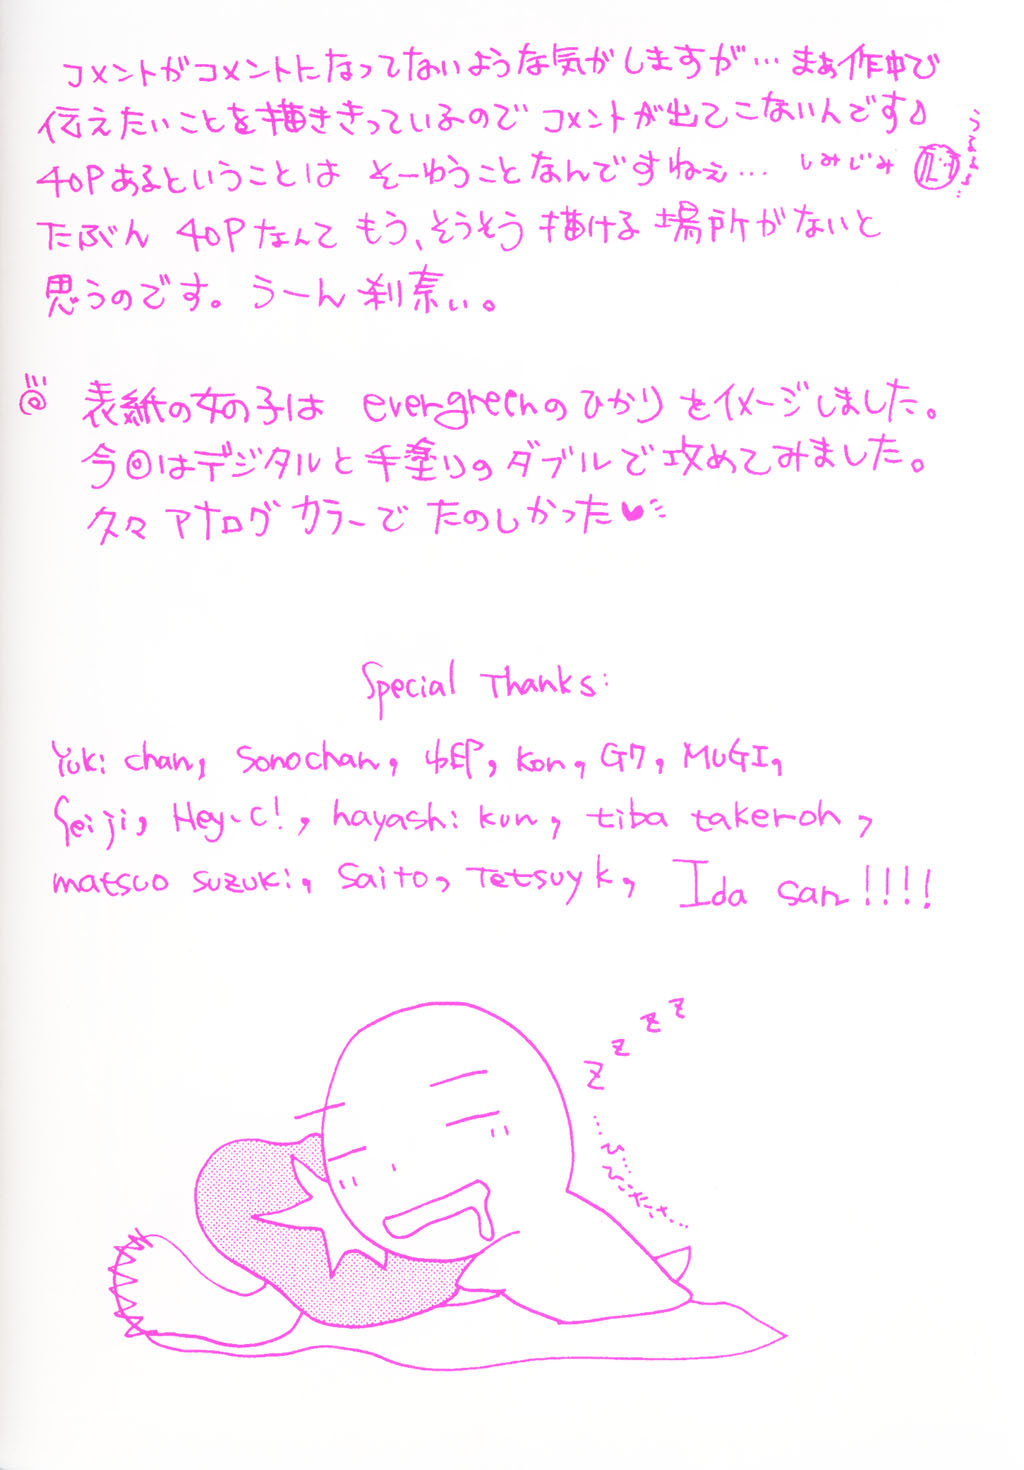 コメントがコメントになってないような気がしますが…まぁ作中で
伝えたいことを描ききっているのでコメントが出てこないんです♪
40Pあるということは そーゆうことなんですねぇ… しみじみ
たぶん 40Pなんて もう、そうそう描ける場所がないと
思うのです。うーん刹奈ぃ。
表紙の女の子は evergreenのひかりをイメージしました。
今回はデジタルと手塗りのダブルで攻めてみました。
久々アナログカラーでたのしかった♥
Special Thanks:
Yuki chan, Sonochan, Kon, G7, MUGI,
Seiji, Hey-C!, hayashi kun, tiba takeroh,
matsuo suzuki, Saito, Tetsuyk, Ida san!!!!
z z z z